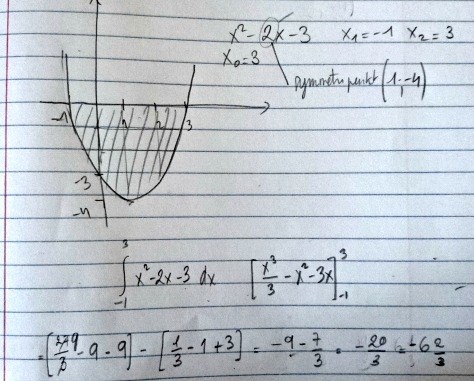 x² - 2x - 3    x₁ = -1  x₂ = 3
x₀ = 3
symmetripunkt (1, -4)
-1  1  2  3
-3
-4
∫₋₁³ x² - 2x - 3 dx    [x³/3 - x² - 3x]₋₁³
= [9 - 9 - 9] - [1/3 - 1 + 3] = -9 - 7/3 = -20/3 = -6 2/3